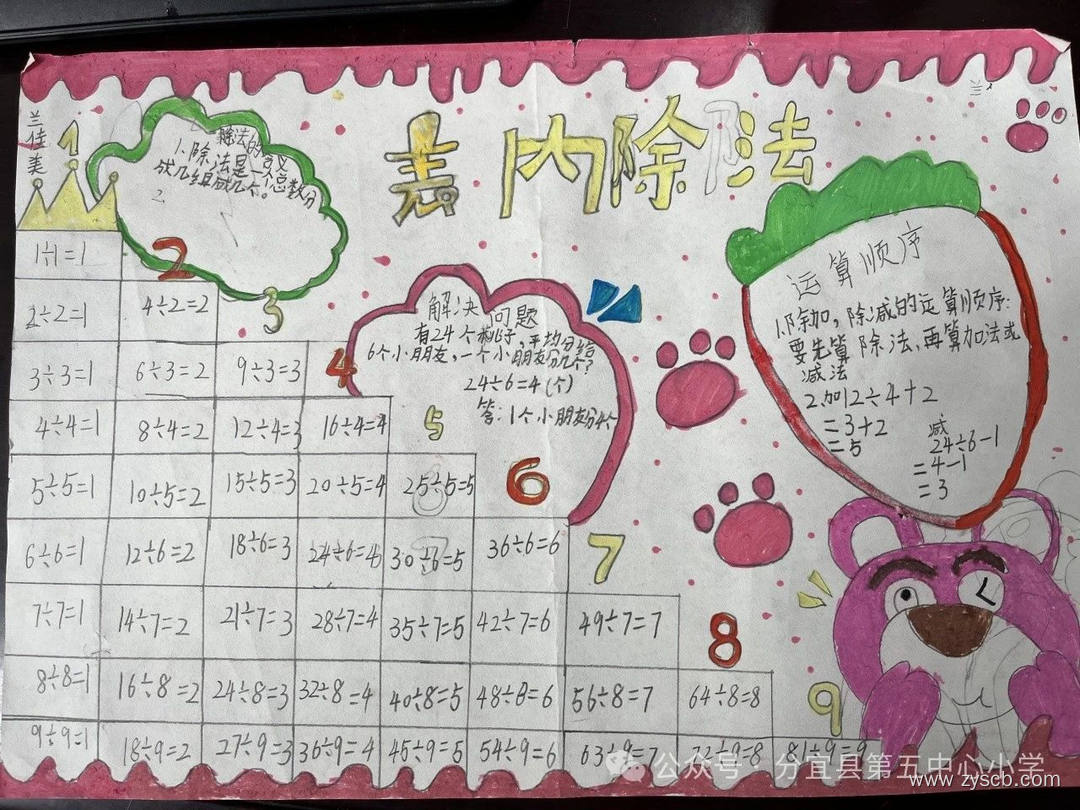 表内除法
兰佳美
1
除法的意义
1.除法是一只总数分
成几组或几个。
2
3
解决问题
有24个桃子,平均分给
6个小朋友,一个小朋友分几个?
24÷6=4(个)
答:1个小朋友分4个
4
5
6
7
8
9
运算顺序
1.除加,除减的运算顺序:
要先算除法,再算加法或
减法
2.加12÷4+2
=3+2
=5
减
24÷6-1
=4-1
=3
1÷1=1
2÷2=1 4÷2=2
3÷3=1 6÷3=2 9÷3=3
4÷4=1 8÷4=2 12÷4=3 16÷4=4
5÷5=1 10÷5=2 15÷5=3 20÷5=4 25÷5=5
6÷6=1 12÷6=2 18÷6=3 24÷6=4 30÷6=5 36÷6=6
7÷7=1 14÷7=2 21÷7=3 28÷7=4 35÷7=5 42÷7=6 49÷7=7
8÷8=1 16÷8=2 24÷8=3 32÷8=4 40÷8=5 48÷8=6 56÷8=7 64÷8=8
9÷9=1 18÷9=2 27÷9=3 36÷9=4 45÷9=5 54÷9=6 63÷9=7 72÷9=8 81÷9=9
公众号·分宜县第五中心小学
www.zyscb.com